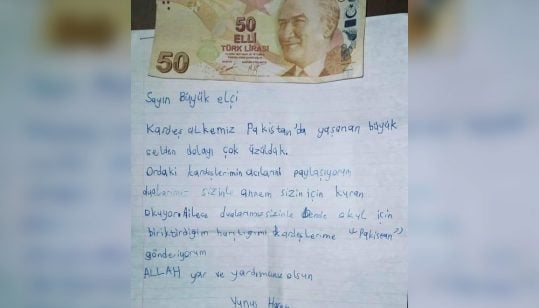 50
ELLİ
TÜRK LİRASI
50
Sayın Büyük elçi
Kardeş ülkemiz Pakistan'da yaşanan büyük
selden dolayı çok üzüldük.
Ordaki kardeşlerimin acılarını paylaşıyorum
dualarımız sizinle annem sizin için kuran
okuyor. Ailece dualarımız sizinle bende okul için
biriktirdiğim harçlığımı kardeşlerime "Pakistan"
gönderiyorum
ALLAH yar ve yardımcınız olsun
Yunus